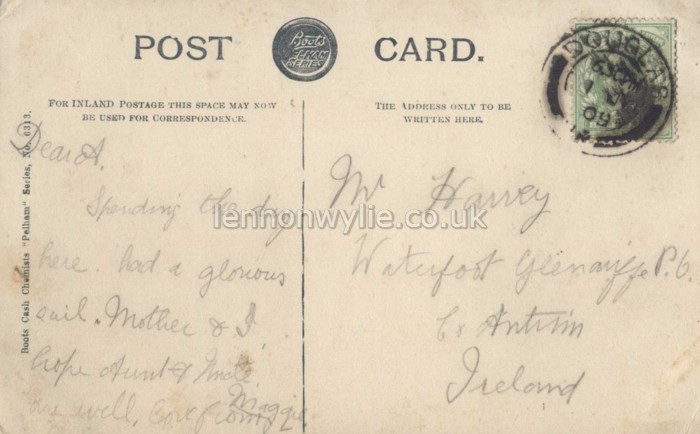 POST CARD.
Boots PELHAM SERIES
FOR INLAND POSTAGE THIS SPACE MAY NOW
BE USED FOR CORRESPONDENCE.
THE ADDRESS ONLY TO BE
WRITTEN HERE.
DOUGLAS
09
Boots Cash Chemists "Pelham" Series, No. 6313.
Dear A.
Spending the day
here. had a glorious
sail. Mother & I
hope Aunt & Uncle
are well, love from Maggie
Mr Harvey
Waterfoot Glenariffe P.O.
Co Antrim
Ireland
lennonwylie.co.uk